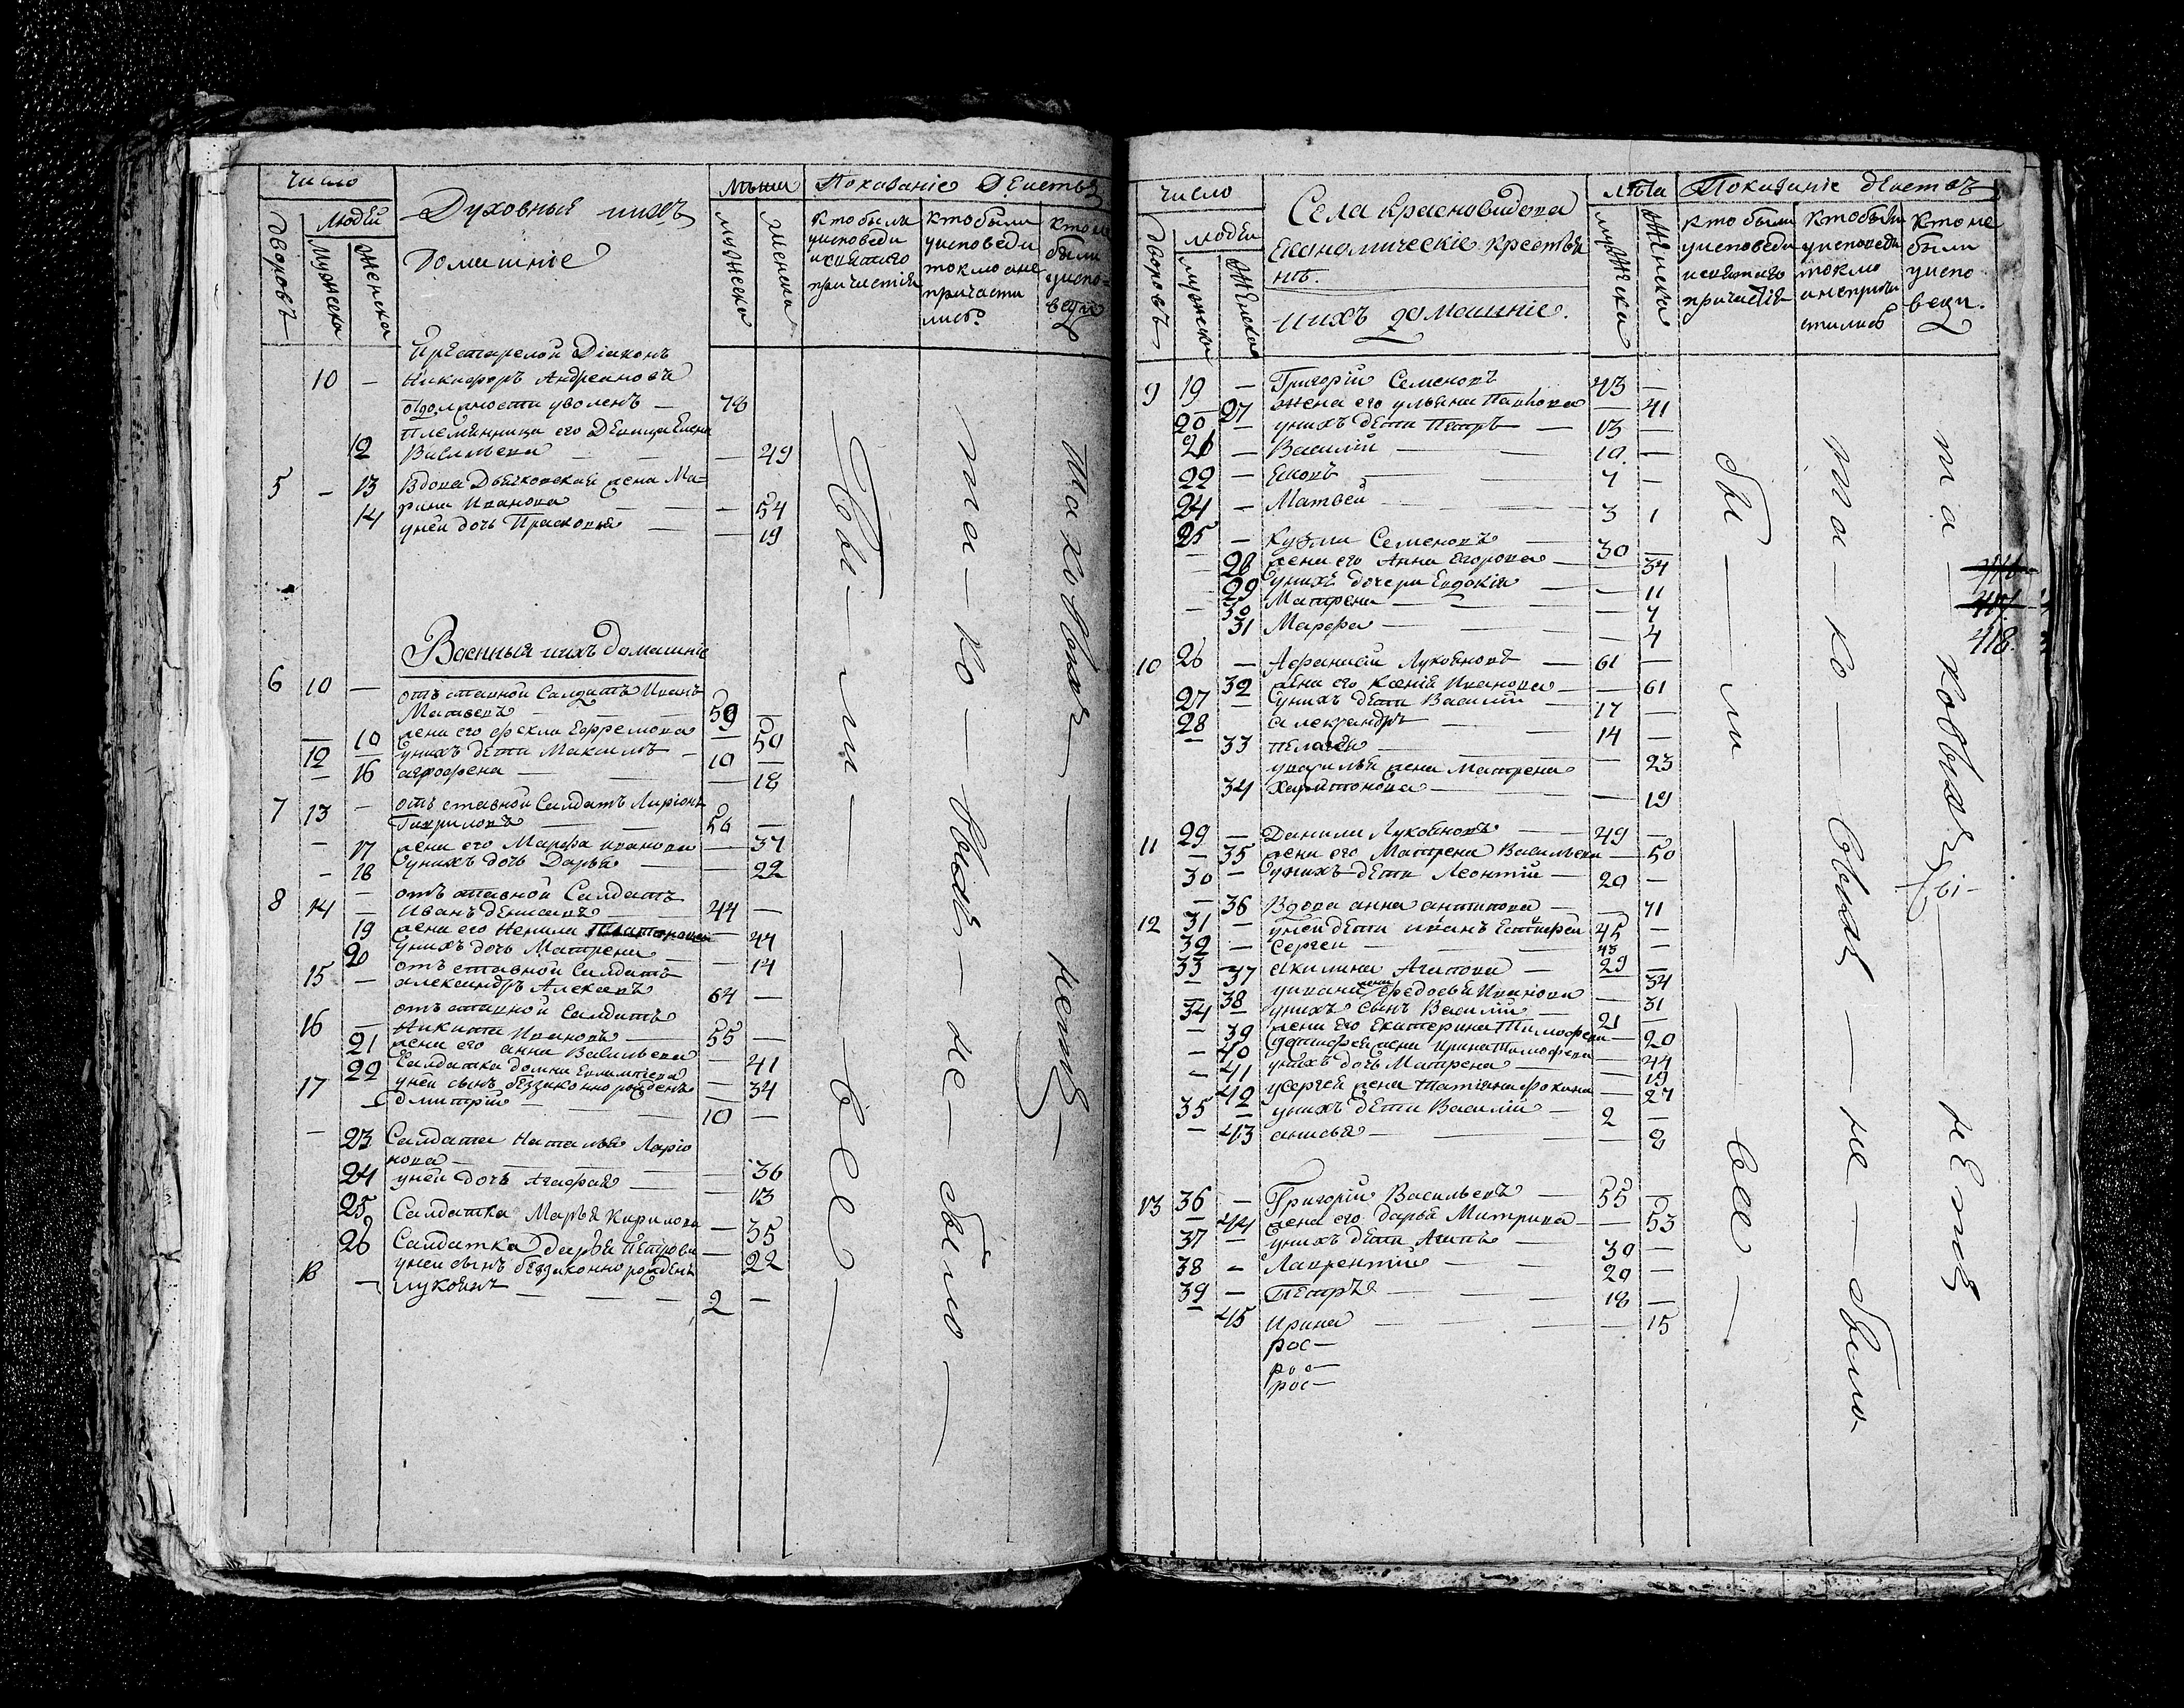 число
Духовныя ихъ
домашніе
Лѣта
Показаніе Дѣиствъ
дворовъ
людей
мужска
женска
мужска
женска
кто были
уисповеди
исвятаго
причастія
кто были
уисповеди
токмо не
причасти
лись
кто не
были
уиспо-
веди
Престарелой Діаконъ
10 — Никифоръ Андреановъ
отдолжности уволенъ — 78
Племянница его Девица Елена
12 Васильева — — 49
5 — 13 Вдова Дьячковская жена Ма-
рина Иванова — — 54
14 уней дочь Прасковья — — 19
Военныя ихъ домашніе
6 10 — отъставной Салдатъ Иванъ
Матвеевъ — 59 —
— 10 жена его Фекла Ефремова — 50
12 — унихъ дети Максимъ — 10 —
— 16 агрофена — — 18
7 13 — отъставной Салдатъ Ларіонъ
Гавриловъ — 56 —
— 17 жена его Марфа иванова — 37
— 18 унихъ дочь Дарья — — 22
8 14 — отъставной Салдатъ
Иванъ денисовъ — 44 —
19 жена его Ненила — 44
20 унихъ дочь Матрена — — 14
15 — отъставной Салдатъ
александръ Алексеевъ 64 —
отъставной Салдатъ
16 — Никита Ивановъ — 55 —
21 жена его анна Васильева — 41
22 Салдатка домна — 34
17 уней сынъ беззаконно рожденъ
дмитрій — 10 —
— 23 Салдатка Наталья Ларіо
нова — — 36
24 уней дочь Агафья — — 13
25 Салдатка Марья Кирилова — 35
26 Салдатка Дарья Петрова — 22
18 — уней сынъ беззаконно рожденъ
лукоянъ — 2 —
бы — ли — все —
та — ко — выхъ — не — было —
таковыхъ — нетъ —
число
Села красновидова
Економическіе крестья
не.
ихъ домашніе.
лѣта
Показаніе дѣиствъ
дворовъ
людей
мужска
женска
мужска
женска
кто были
уисповеди
исвятаго
причастія
кто были
уисповеди
токмо
анеприча
стились
кто не
были
уиспо
веди.
9 19 — Григорій Семеновъ 43 —
— 27 жена его ульяна Павлова — 41
20 — унихъ дети Петръ — 13 —
21 — Василій — 10 —
22 — Ековъ 7 —
24 — Матвей — 3 1
25 — Кузма Семеновъ — 30 —
— 28 жена его Анна Егорова — 34
29 унихъ дочери Евдокія — — 11
— 30 Матрена — — 7
31 Марфа — — 4
10 26 — Афанасій Лукояновъ — 61 —
32 жена его Ксенія Иванова — — 61
27 — унихъ дети Василій — 17 —
28 александръ — 14 —
— 33 Пелагея — — 23
увасилья жена Матрена
34 Харитонова — — 19
11 29 — Данила Лукояновъ — 49 —
— 35 жена его Матрена Васильева — 50
30 — унихъ дети Леонтій — 20 —
— 36 Вдова анна антипова — — 71
12 31 — уней дети иванъ 45 —
32 — Сергей — 43 —
33 —37 акилина Агапова — 29 34
— 38 уивана жена Федосья Иванова — 31
34 — унихъ сынъ Василій — 21 —
— 39 жена его Екатерина Тимофеева — 20
— 40 жена Ирина Тимофеева — 44
— 41 унихъ дочь Матрена — — 19
42 усергея жена Татіяна фокина — 27
35 — унихъ дети Василій — 2 —
— 43 анисья — — 8
13 36 — Григорій Васильевъ — 55 —
— 44 жена его дарья Митрива — — 53
37 — унихъ дети Агапъ — 30 —
38 — Лаврентій — 20 —
39 — Петръ — 18 —
— 45 Ирина — — 15
рос—
рос—
рос—
бы — ли — все —
та — ко — выхъ — не — было
та — ковыхъ — нетъ
418.